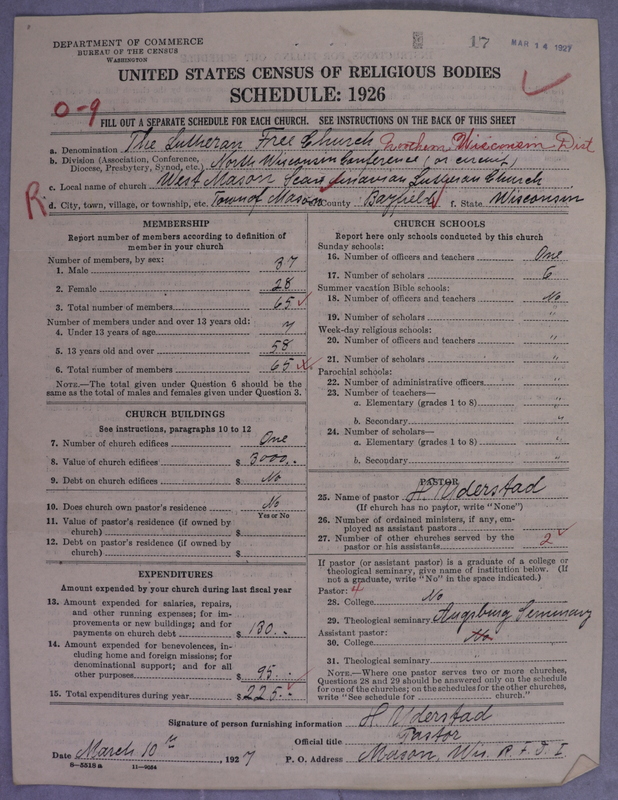 DEPARTMENT OF COMMERCE
BUREAU OF THE CENSUS
WASHINGTON
17
MAR 14 1927
UNITED STATES CENSUS OF RELIGIOUS BODIES
SCHEDULE: 1926
0-9
FILL OUT A SEPARATE SCHEDULE FOR EACH CHURCH. SEE INSTRUCTIONS ON THE BACK OF THIS SHEET
a. Denomination The Lutheran Free Church Northern Wisconsin Dist
b. Division (Association, Conference, Diocese, Presbytery, Synod, etc.) North Wisconsin Conference (or circuit)
c. Local name of church West Mason Scandinavian Lutheran Church
R
d. City, town, village, or township, etc. Town of Mason County Bayfield f. State Wisconsin
MEMBERSHIP
Report number of members according to definition of member in your church
Number of members, by sex:
1. Male 37
2. Female 28
3. Total number of members 65
Number of members under and over 13 years old:
4. Under 13 years of age 7
5. 13 years old and over 58
6. Total number of members 65
NOTE.—The total given under Question 6 should be the same as the total of males and females given under Question 3.
CHURCH BUILDINGS
See instructions, paragraphs 10 to 12
7. Number of church edifices One
8. Value of church edifices $ 3000.-
9. Debt on church edifices $ No
10. Does church own pastor's residence No
Yes or No
11. Value of pastor's residence (if owned by church) $
12. Debt on pastor's residence (if owned by church) $
EXPENDITURES
Amount expended by your church during last fiscal year
13. Amount expended for salaries, repairs, and other running expenses; for improvements or new buildings; and for payments on church debt $ 130.-
14. Amount expended for benevolences, including home and foreign missions; for denominational support; and for all other purposes $ 95.-
15. Total expenditures during year $ 225.-
CHURCH SCHOOLS
Report here only schools conducted by this church
Sunday schools:
16. Number of officers and teachers One
17. Number of scholars 6
Summer vacation Bible schools:
18. Number of officers and teachers No
19. Number of scholars "
Week-day religious schools:
20. Number of officers and teachers "
21. Number of scholars "
Parochial schools:
22. Number of administrative officers "
23. Number of teachers—
a. Elementary (grades 1 to 8) "
b. Secondary "
24. Number of scholars—
a. Elementary (grades 1 to 8) "
b. Secondary "
PASTOR
25. Name of pastor H. Yderstad
(If church has no pastor, write "None")
26. Number of ordained ministers, if any, employed as assistant pastors
27. Number of other churches served by the pastor or his assistants 2
If pastor (or assistant pastor) is a graduate of a college or theological seminary, give name of institution below. (If not a graduate, write "No" in the space indicated.)
Pastor: 4
28. College No
29. Theological seminary Augsburg Seminary
Assistant pastor:
30. College No
31. Theological seminary
NOTE.—Where one pastor serves two or more churches, Questions 28 and 29 should be answered only on the schedule for one of the churches; on the schedules for the other churches, write "See schedule for church."
Signature of person furnishing information H. Yderstad
Official title Pastor
Date March 10th, 1927 P. O. Address Mason, Wis. R.F.D. 1
8-5518a 11-9054